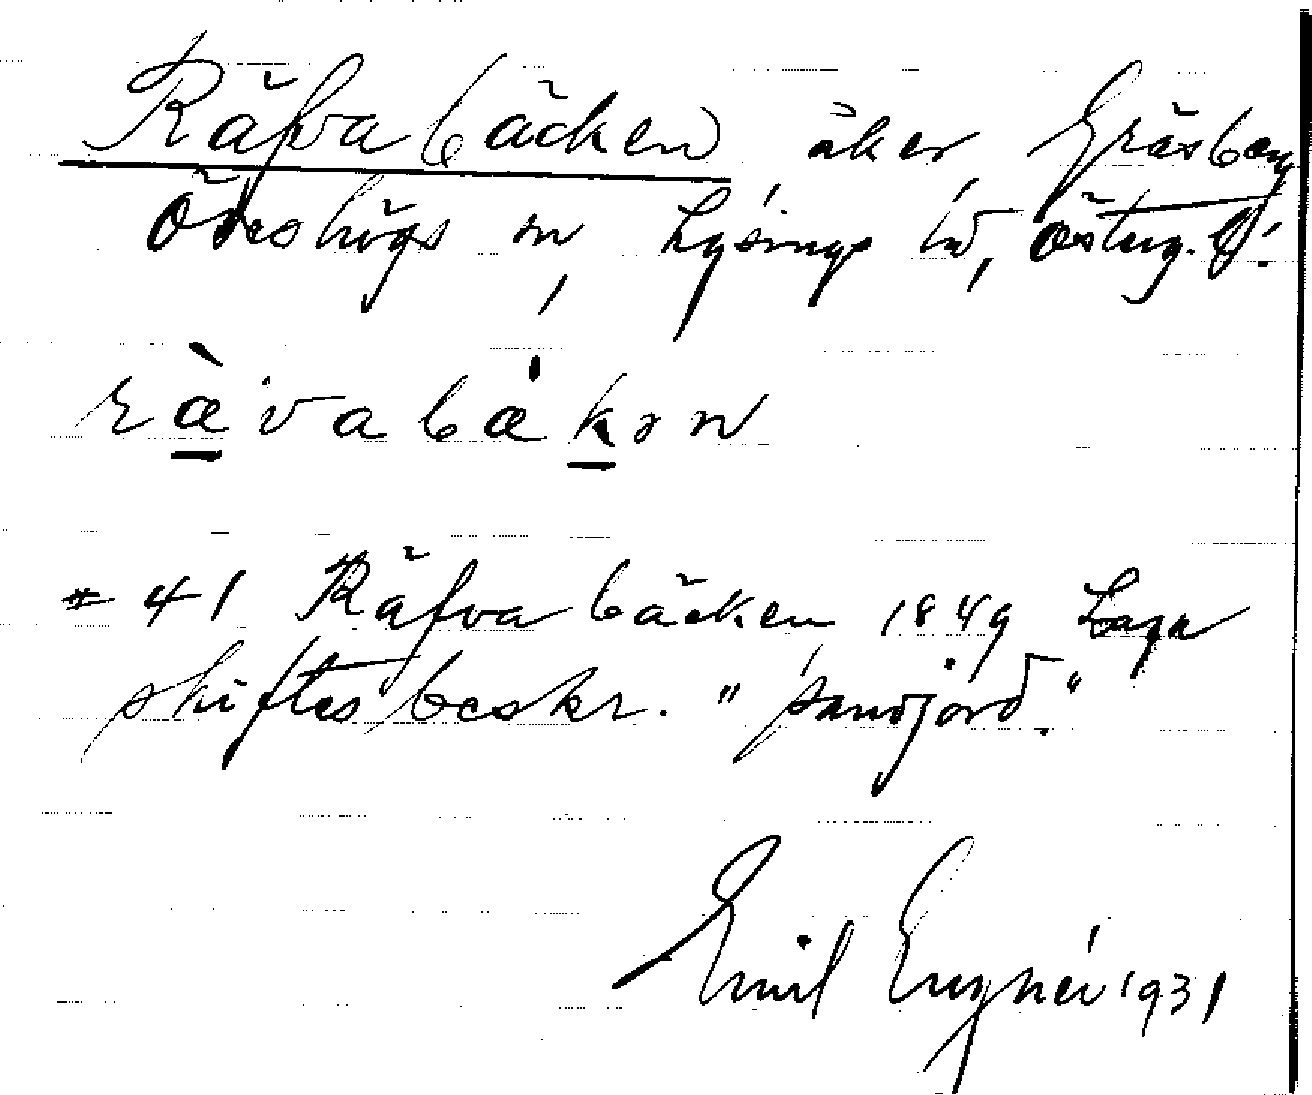 Räfvabäcken åker Gräsberg
Ödeshögs sn Lysings hd, Österg. l.
rævabækən
# 41 Räfvabäcken 1849 Laga
skiftesbeskr. "sandjord."
Emil 1931